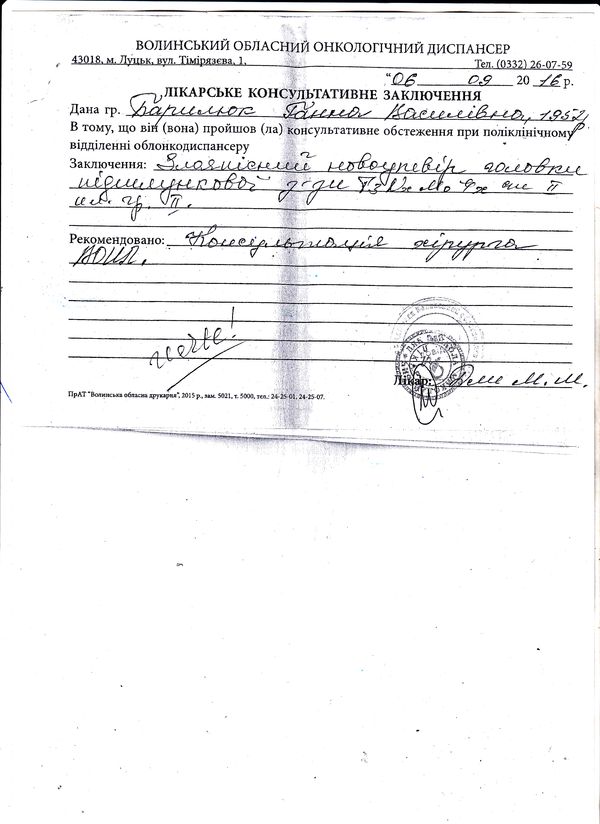 ВОЛИНСЬКИЙ ОБЛАСНИЙ ОНКОЛОГІЧНИЙ ДИСПАНСЕР
43018, м. Луцьк, вул. Тімірязєва, 1, Тел. (0332) 26-07-59
"06 09 2016 р.
ЛІКАРСЬКЕ КОНСУЛЬТАТИВНЕ ЗАКЛЮЧЕННЯ
Дана гр. Ганна Василівна, 1952
В тому, що він (вона) пройшов (ла) консультативне обстеження при поліклінічному
відділенні облонкодиспансеру
Заключення: Злоякісний новоутвір головки
підшлункової з-зи T3 Nx M0 II
гр. II.
Рекомендовано: Консультація хірурга
ВОКЛ.
Лікар: М. М.
ПрАТ "Волинська обласна друкарня", 2015 р., зам. 5021, т. 5000, тел.: 24-25-01, 24-25-07.